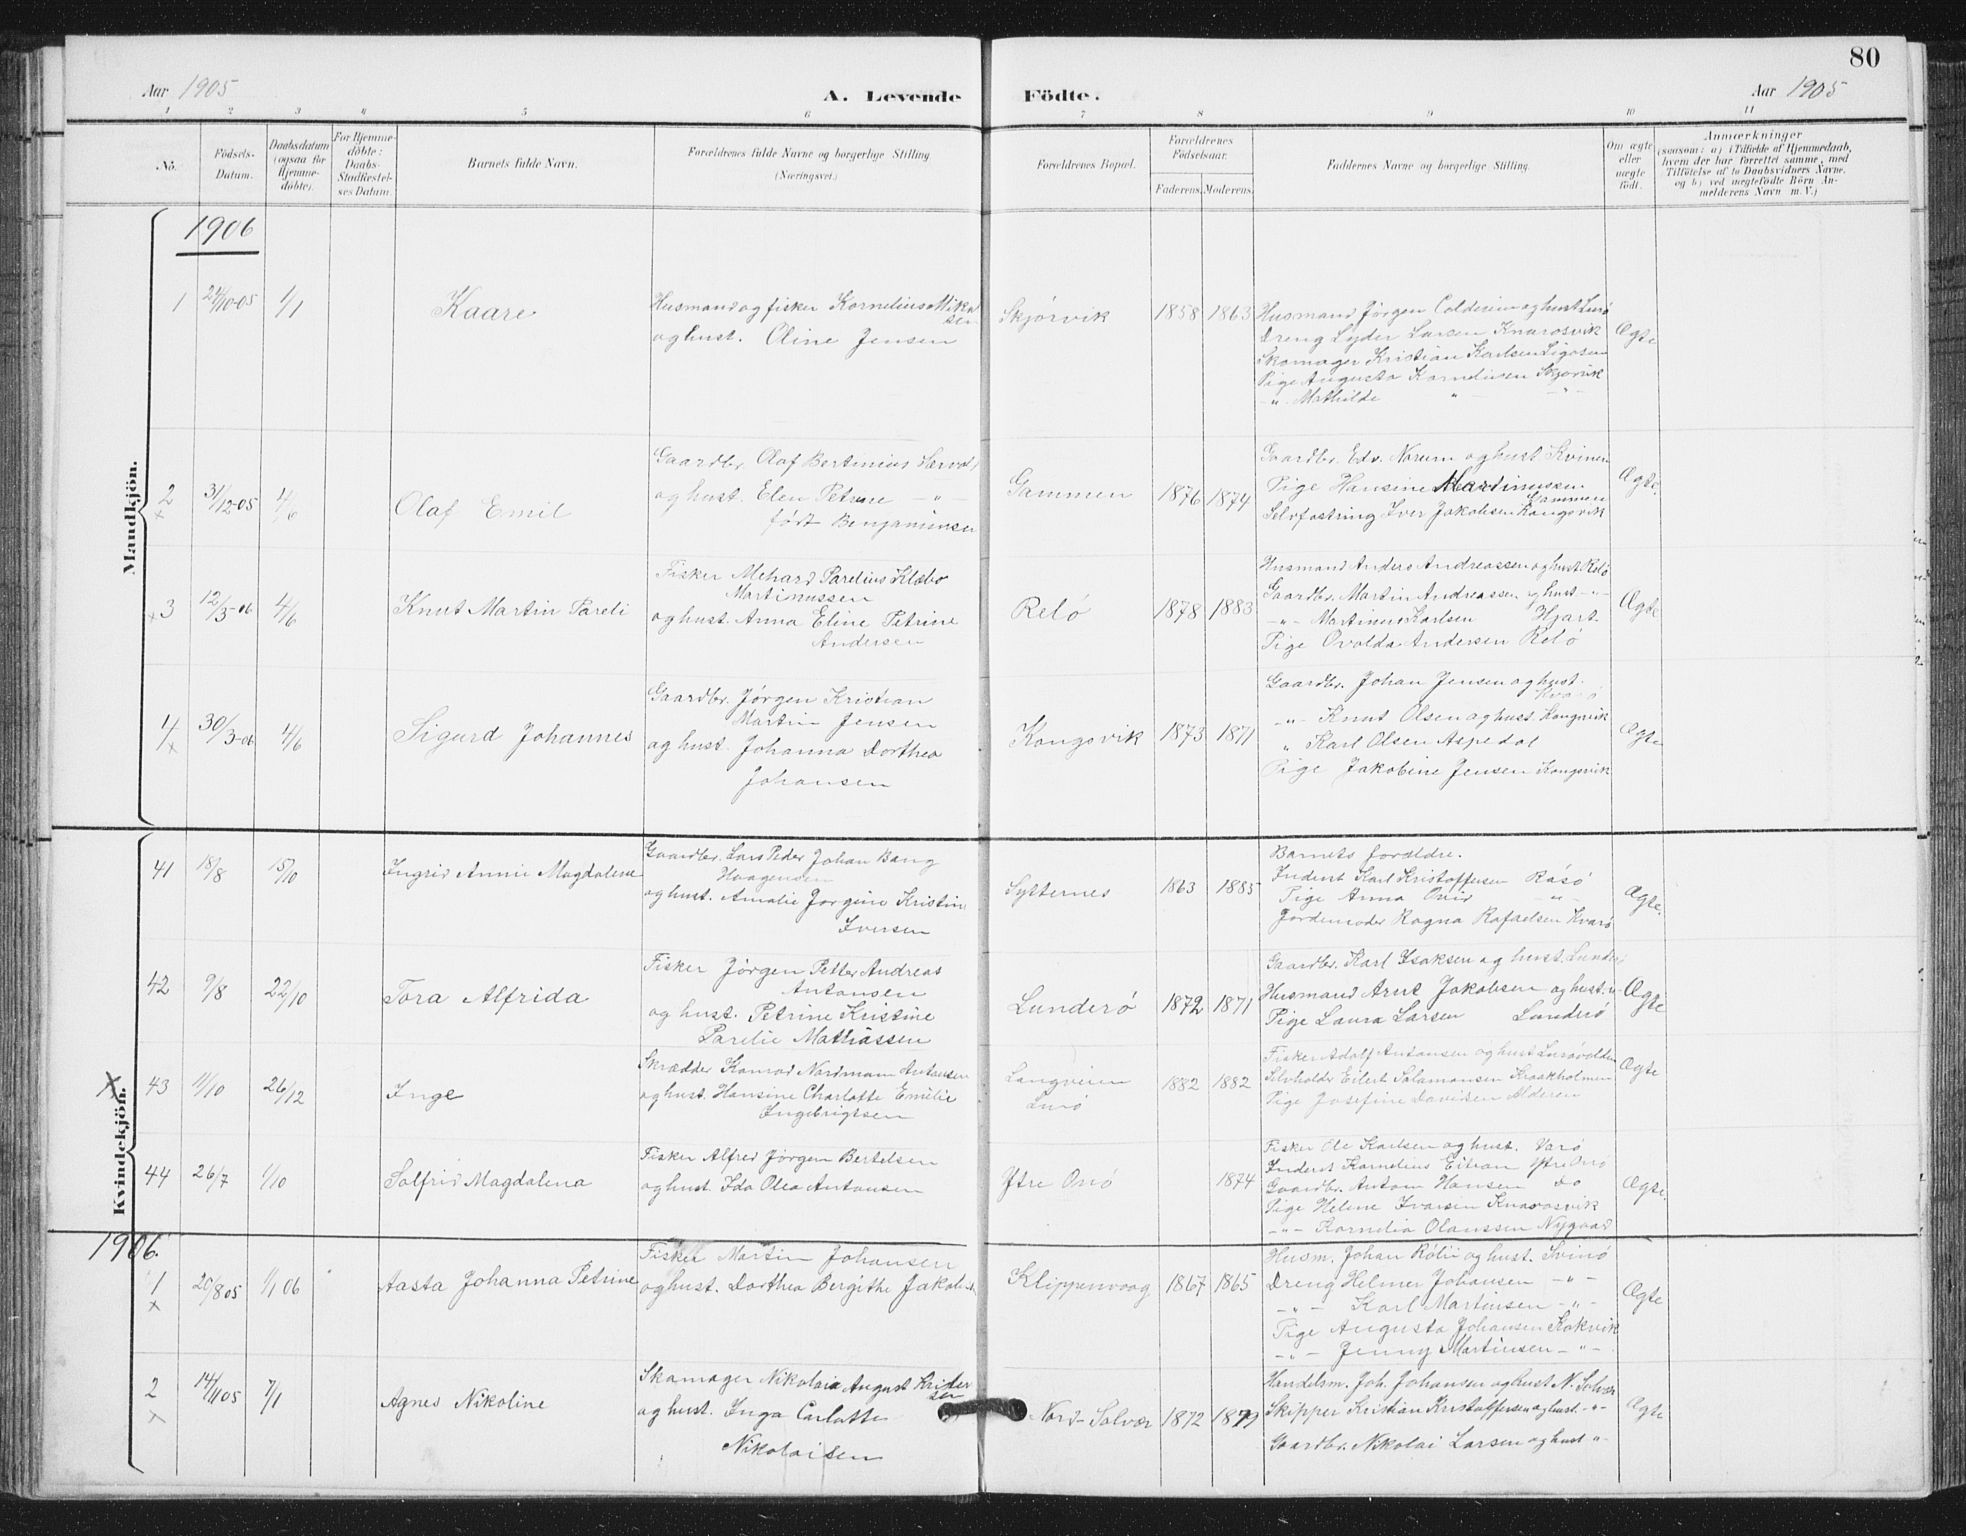 80
Aar 1905
A. Levende Födte.
Aar 1905
1 2 3 4 5 6 7 8 9 10 11
No.
Födsels-Datum.
Daabsdatum (ogsaa for Hjemmedöbte).
For Hjemmedöbte: Daabs-Stadfæstelses Datum.
Barnets fulde Navn.
Forældrenes fulde Navne og borgerlige Stilling (Næringsvei.)
Forældrenes Bopæl.
Forældrenes Födselsaar.
Faderens. Moderens.
Faddernes Navne og borgerlige Stilling.
Om ægte eller uægte födt.
Anmærkninger
(saasom: a) i Tilfælde af Hjemmedaab, hvem der har forrettet samme, med Tilföielse af to Daabsvidners Navne, og b) ved uægtefödte Börn Anmelderens Navn m. V.)
Mandkjön.
1906
1 24/10-05 1/1 Kaare
Husmand og fisker Kornelius
og hust. Oline Jensen
Skjørvik 1858 1863
Husmand Jørgen og hust Lurø
Dreng Lyder Larsen Knarosvik
Skomager Kristian Karlsen
Pige Augusta Kornelisen Skjørvik
-"- Mathilde " -"-
Ægte
2 x 31/12-05 4/6 Olaf Emil
Gaardbr. Olaf Bertinius
og hust. Elen Petrine -"-
født Benjaminsen
Gammen 1876 1874
Gaardbr. Edv. Norum og hust Kvinen
Pige Hansine Martinussen Gammen
Selvfostring Iver Jakobsen Kongsvik
Ægte.
x 3 12/3-06 4/6 Knut Martin Pareli
Fisker Mehard Parelius Klæbo
Martinussen
og hust. Anna Eline Petrine
Andersen
Relö 1878 1883
Husmand Anders Andreassen og hust Relö
Gaardbr. Martin Andreassen og hust -"-
-"- Martinus Karlsen Hjart
Pige Ovalda Andersen Relö
Ægte
4 x 30/3-06 4/6 Sigurd Johannes
Gaardbr. Jørgen Kristian
Martin Jensen
og hust. Johanna Dorthea
Johansen
Kongsvik 1873 1871
Gaardbr. Johan Jensen og hust.
Kvarø
-"- Knut Olsen og hust. Kongsvik
" Karl Olsen Aspedal
Pige Jakobine Jensen Kongsvik
Ægte
Kvindekjön.
41 18/8 15/10 Ingrid Annie Magdalene
Gaardbr. Lars Peder Johan Bang
Haagensen
og hust. Amalie Jorgine Kristin
Iversen
Sytternes 1863 1885
Barnets forældre.
Inderst Karl Kristoffersen Råsö
Pige Anna -"-
Jordemoder Ragna Rafaelsen Kvarø
Ægte.
42 9/8 22/10 Tora Alfrida
Fisker Jørgen Petter Andreas
Antonsen
og hust. Petrine Kristine
Parelie Mathiassen
Lunderö 1872 1871
Gaardbr. Karl Isaksen og hust. Lunderö
Husmand Arnt Jakobsen og hust. "-
Pige Laura Larsen Lunderö
Ægte
x 43 11/10 26/12 Inge
Skrædder Konrad Nordmann Antonsen
og hust. Hansine Charlotte Emelie
Ingebrigtsen
Langveien
Lurø
1882 1882
Fisker Adolf Antonsen og hust Lurøvolden
Selvholder Eilert Salamonsen Kraakholmen
Pige Josefine Davidsen Alderen
Ægte
44 26/7 1/10 Solfrid Magdalena
Fisker Alfred Jørgen Bertelsen
og hust. Ida Olea Antonsen
Ytre Onö 1874
Fisker Ole Karlsen og hust. Varø
Inderst Kornelius Eitran Ytre Onö
Gaardbr. Antom Hansen do
Pige Helene Ivarsen Knarosvik
-"- Kornelia Olaussen Nygaard
Ægte.
1906.
1 x 20/8 05 1/1 06 Aasta Johanna Petrine
Fisker Martin Johansen
og hust. Dorthea Bergithe Jakobsen
Klippenvaag 1867 1865
Husm. Johan Rölii og hust. Svinö
Dreng Helmer Johansen -"-
-"- Karl Martinsen -"-
Pige Augusta Johansen Kokvik
-"- Jenny Martinsen -"-
Ægte
2 x 14/11 05 7/1 Agnes Nikoline
Skomager Nikolai August
og hust. Inga Carlotte
Nikolaisen
Nord-Solvær 1872 1879
Handelsm. Joh. Johansen og hust N. Solvær
Skipper Kristian Kristoffersen og hust. -"-
Gaardbr. Nikolai Larsen og hust "-
Ægte